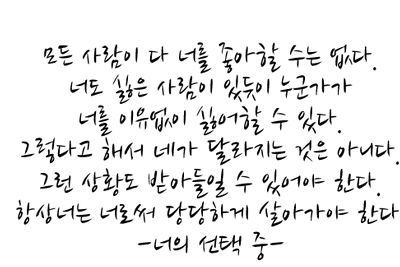 모든 사람이 다 너를 좋아할 수는 없다.
너도 싫은 사람이 있듯이 누군가가
너를 이유없이 싫어할 수 있다.
그렇다고 해서 네가 달라지는 것은 아니다.
그런 상황도 받아들일 수 있어야 한다.
항상너는 너로써 당당하게 살아가야 한다
-너의 선택 중-